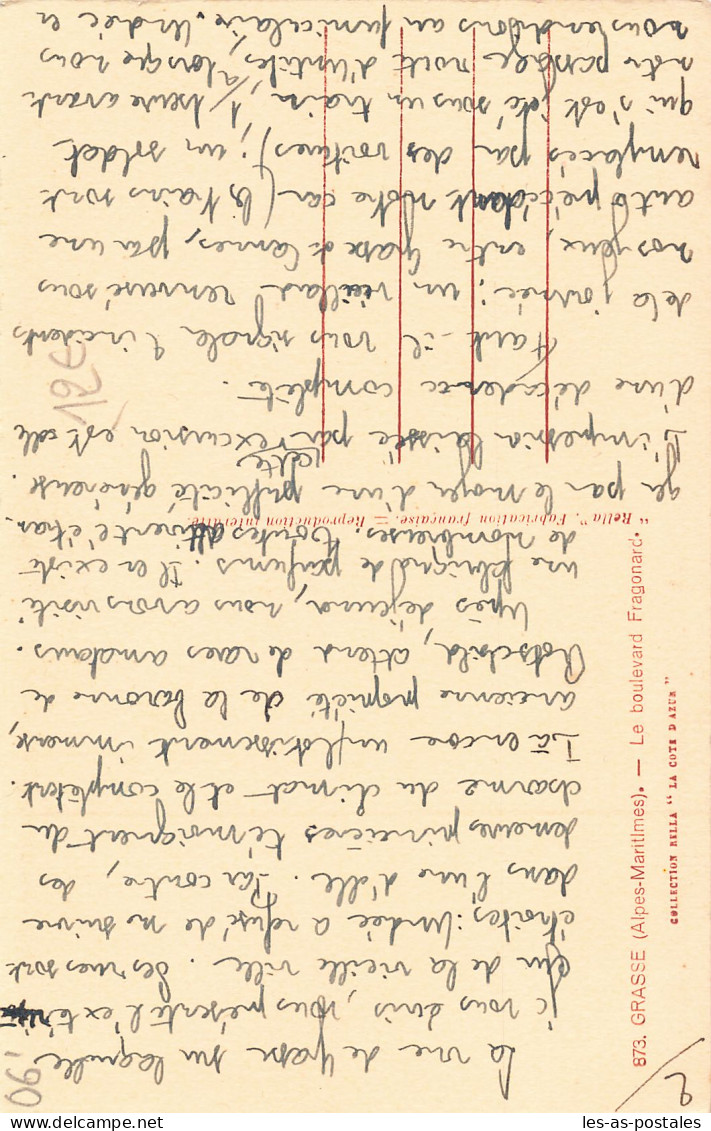 La vue de Grasse sur laquelle
je vous écris, vous présente l'exté-
rieur de la vieille ville. Ses rues sont
étroites: Andrée a refusé de me suivre
dans l'une d'elle. Par contre, des
demeures princières témoignent du
charme du climat et le complètent.
Là encore un lotissement immense,
ancienne propriété de la baronne de
Rotschild, attend de rares amateurs.
Après déjeuner, nous avons visité
une fabrique de parfums. Il en existe
de nombreuses. Toutes attirent l'étran-
ger par le moyen d'une publicité généreuse.
L'impression laissée par cette excursion est celle
d'une décadence complète.
Faut-il vous signaler 2 incidents
de la journée: un vieillard renversé sous
nos yeux, entre Grasse & Cannes, par une
auto précédant notre car (les trains sont
remplacés par des voitures); un soldat
qui s'est jeté sous un train, 1/2 heure avant
notre passage note d'Antibes, alors que nous
nous rendions au funiculaire. Andrée en
873. GRASSE (Alpes-Maritimes). — Le boulevard Fragonard.
COLLECTION RELLA "LA COTE D'AZUR"
"Rella". Fabrication française. — Reproduction interdite
12€
06.
2/
les-as-postales